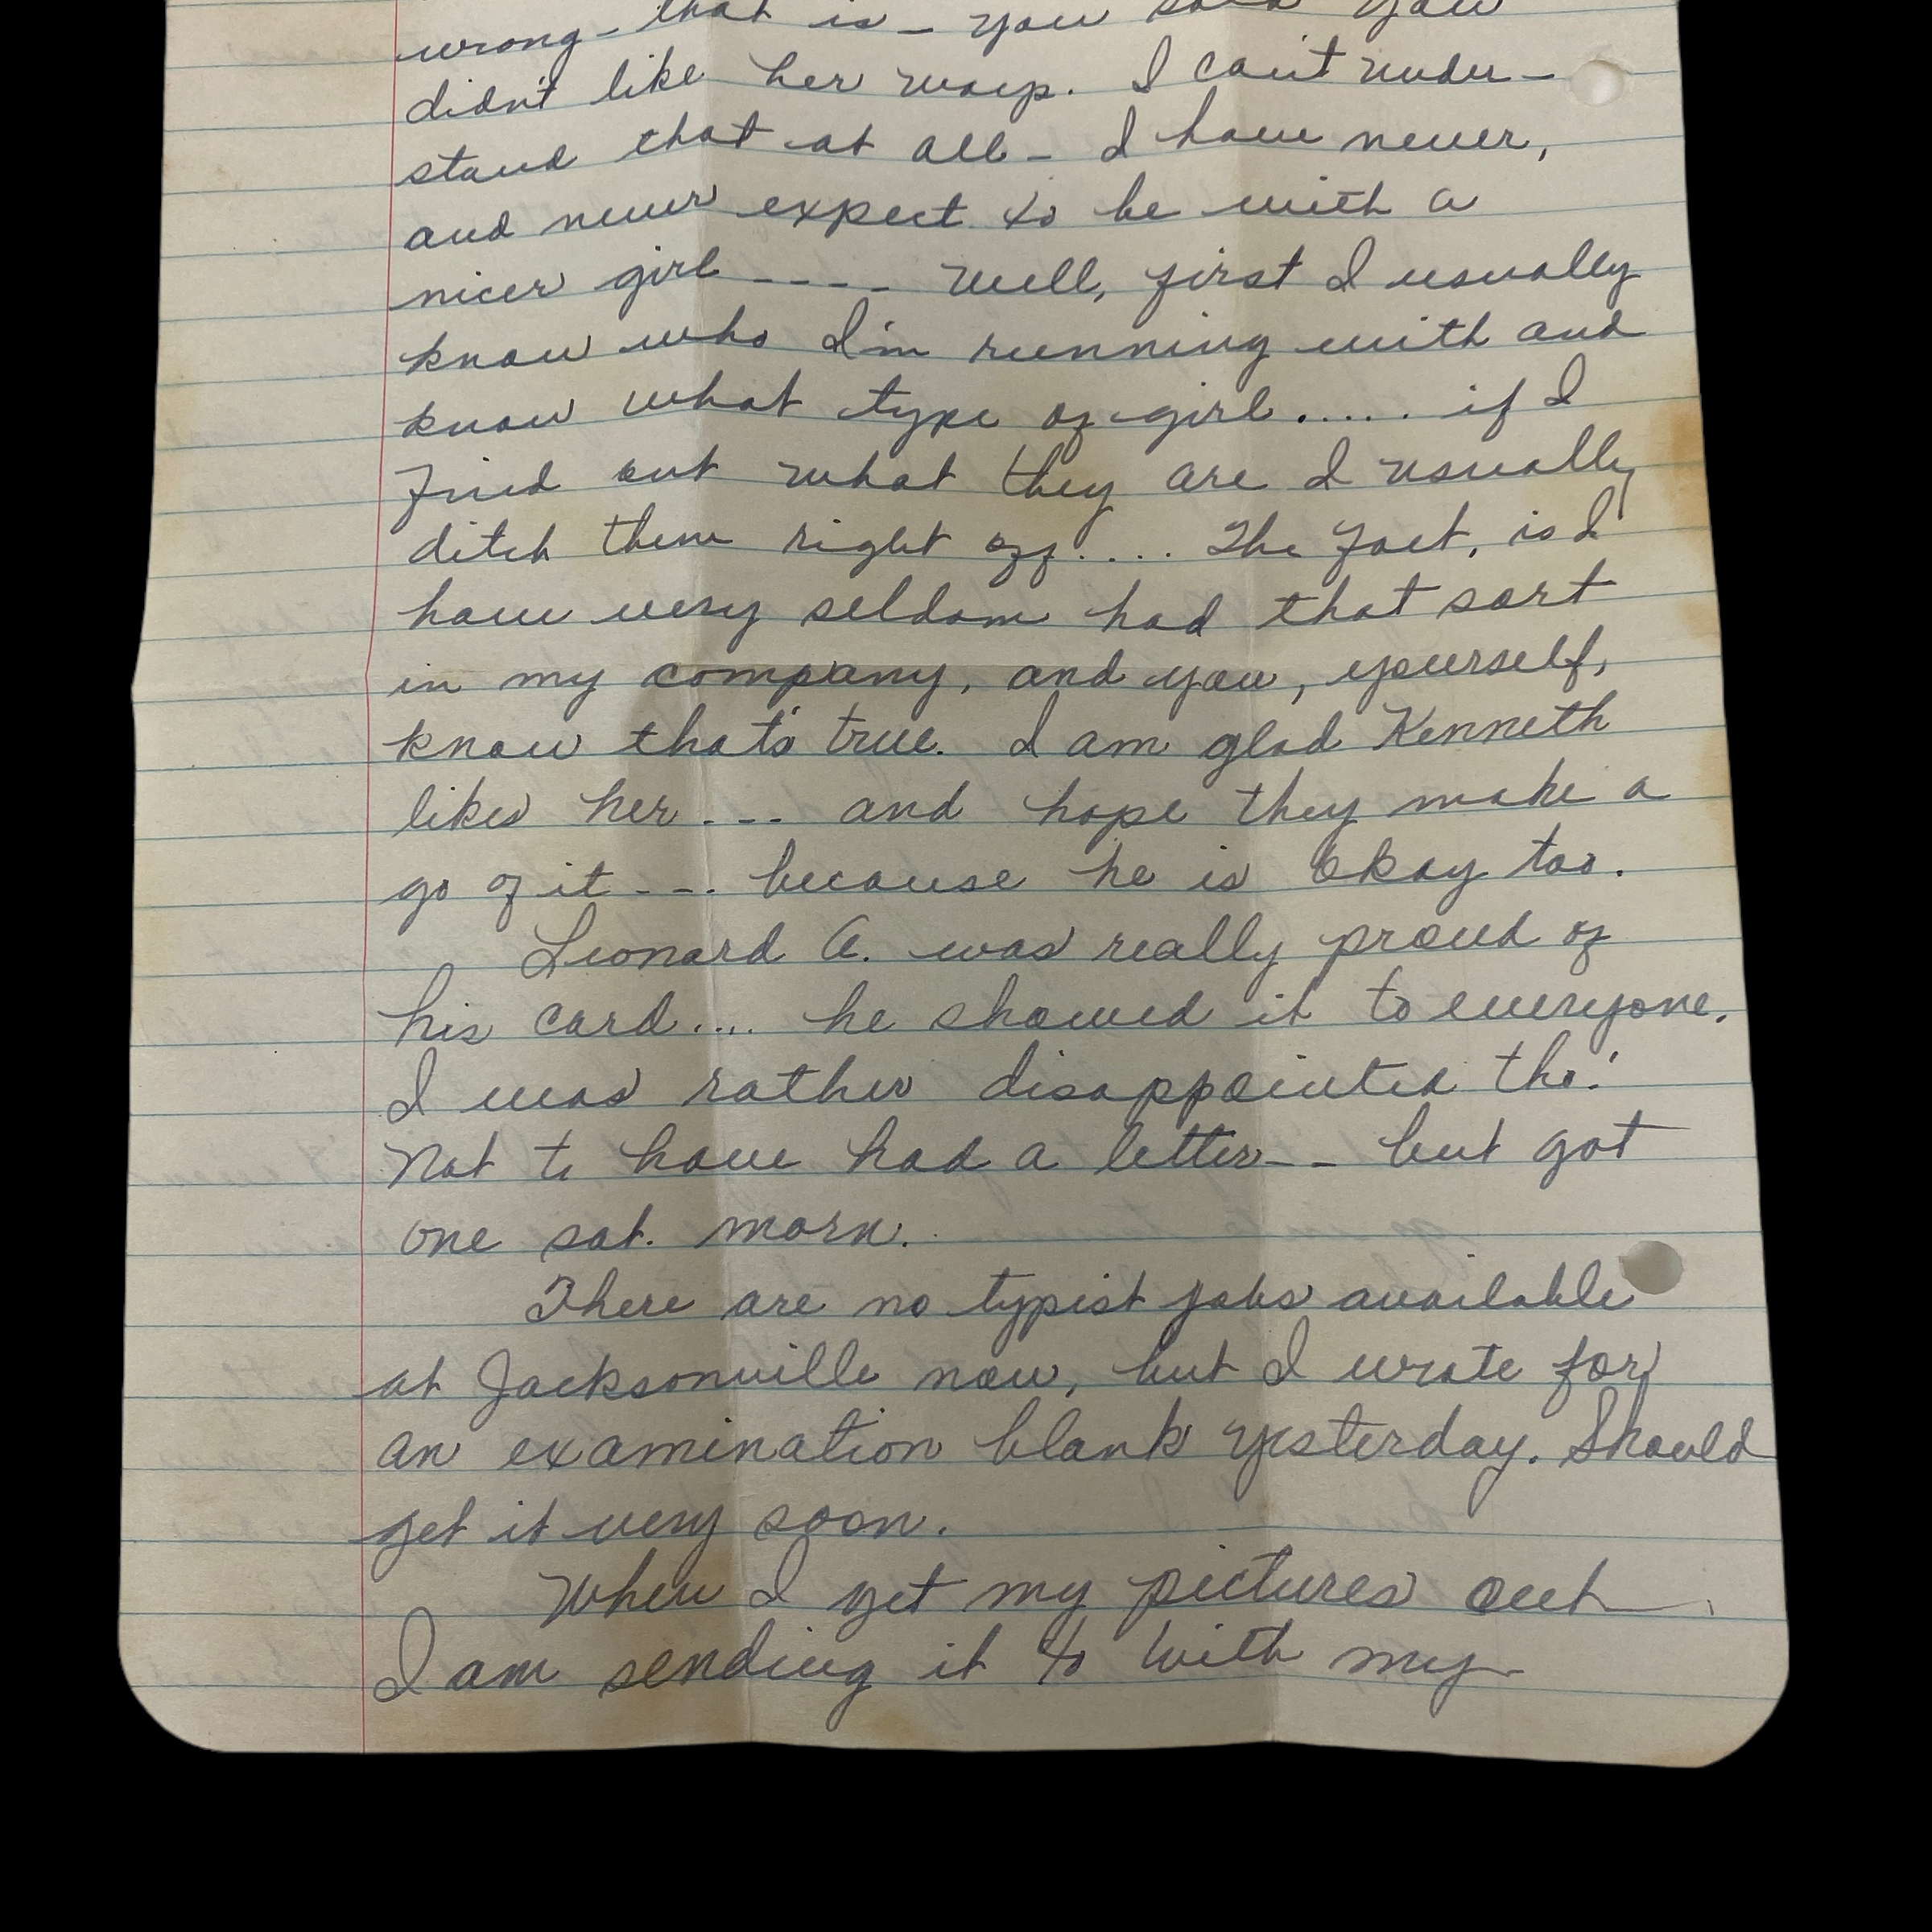 wrong - that is - you said you
didn't like her ways. I can't under-
stand that at all - I have never,
and never expect to be with a
nicer girl ---- Well, first I usually
know who I'm running with and
know what type of girl ..... if I
find out what they are I usually
ditch them right off .... The fact, is I
have very seldom had that sort
in my company, and you, yourself,
know that's true. I am glad Kenneth
likes her --- and hope they make a
go of it --- because he is Okay too.
Leonard A. was really proud of
his card .... he showed it to everyone.
I was rather disappointed tho'.
Not to have had a letter -- but got
one sat. morn.
There are no typist jobs available
at Jacksonville now, but I wrote for
an examination blank yesterday. Should
get it very soon.
When I get my pictures out
I am sending it to with my